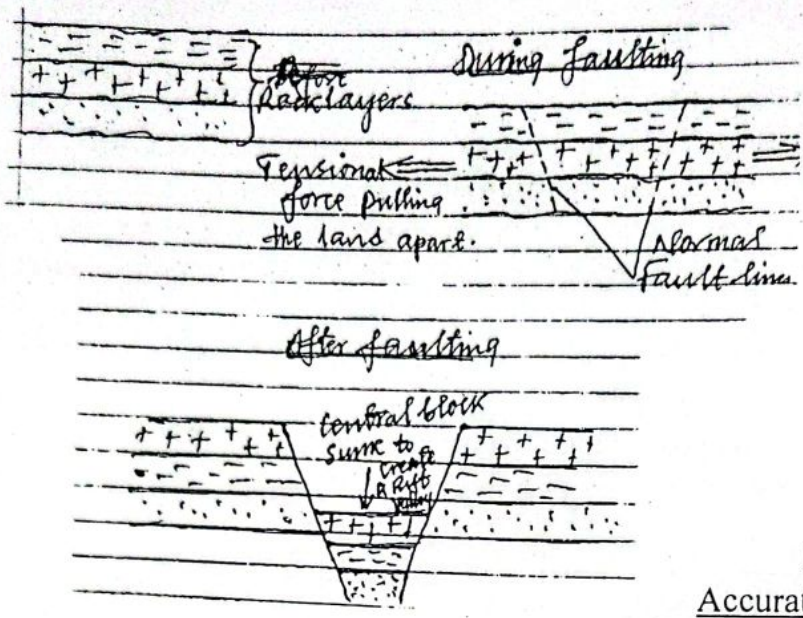 Before
Rock layers
During faulting
Tensional
force pulling
the land apart.
Normal
Fault lines
After faulting
Central block
Sunk to
create
a Rift
valley
Accurat